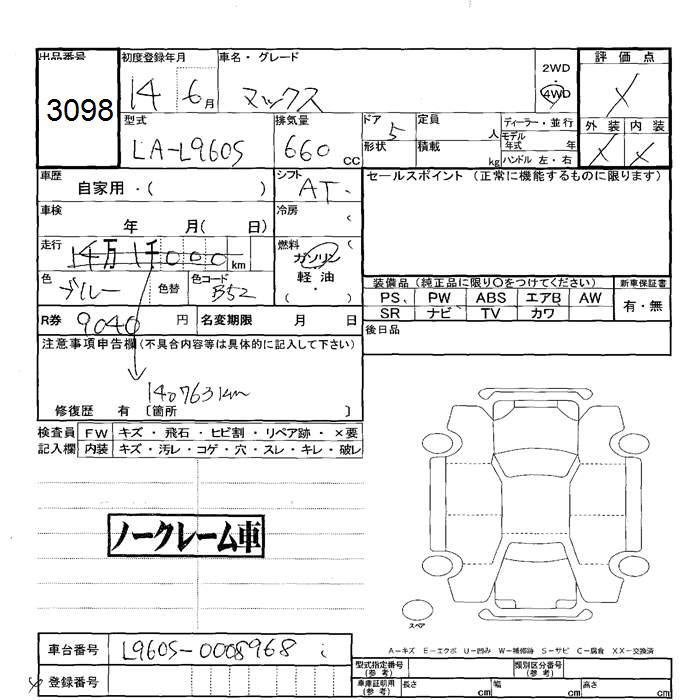 出品番号 初度登録年月 車名・グレード 2WD 評価点
3098 14 6月 マックス 4WD
型式 排気量 ドア 定員 ディーラー・並行 外装 内装
LA-L960S 660 cc 5 人 モデル年式 年
形状 積載 kg ハンドル 左・右
車歴 自家用・( ) シフト AT セールスポイント (正常に機能するものに限ります)
車検 年 月( 日) 冷房
走行 14万1千000km 燃料 ガソリン
軽油
( )
色 ブルー 色替 色コード B52
装備品 (純正品に限り○をつけてください) 新車保証書
PS PW ABS エアB AW 有・無
SR ナビ TV カワ
R券 9040 円 名変期限 月 日 後日品
注意事項申告欄(不具合内容等は具体的に記入して下さい)
140763km
修復歴 有 〔箇所 〕
検査員 FW キズ・飛石・ヒビ割・リペア跡・×要
記入欄 内装 キズ・汚レ・コゲ・穴・スレ・キレ・破レ
ノークレーム車
スペア
A−キズ E−エクボ U−凹み W−補修跡 S−サビ C−腐食 XX−交換済
車台番号 L960S-0008968
登録番号
型式指定番号(参考) 類別区分番号(参考)
車庫証明用(参考) 長さ cm 幅 cm 高さ cm